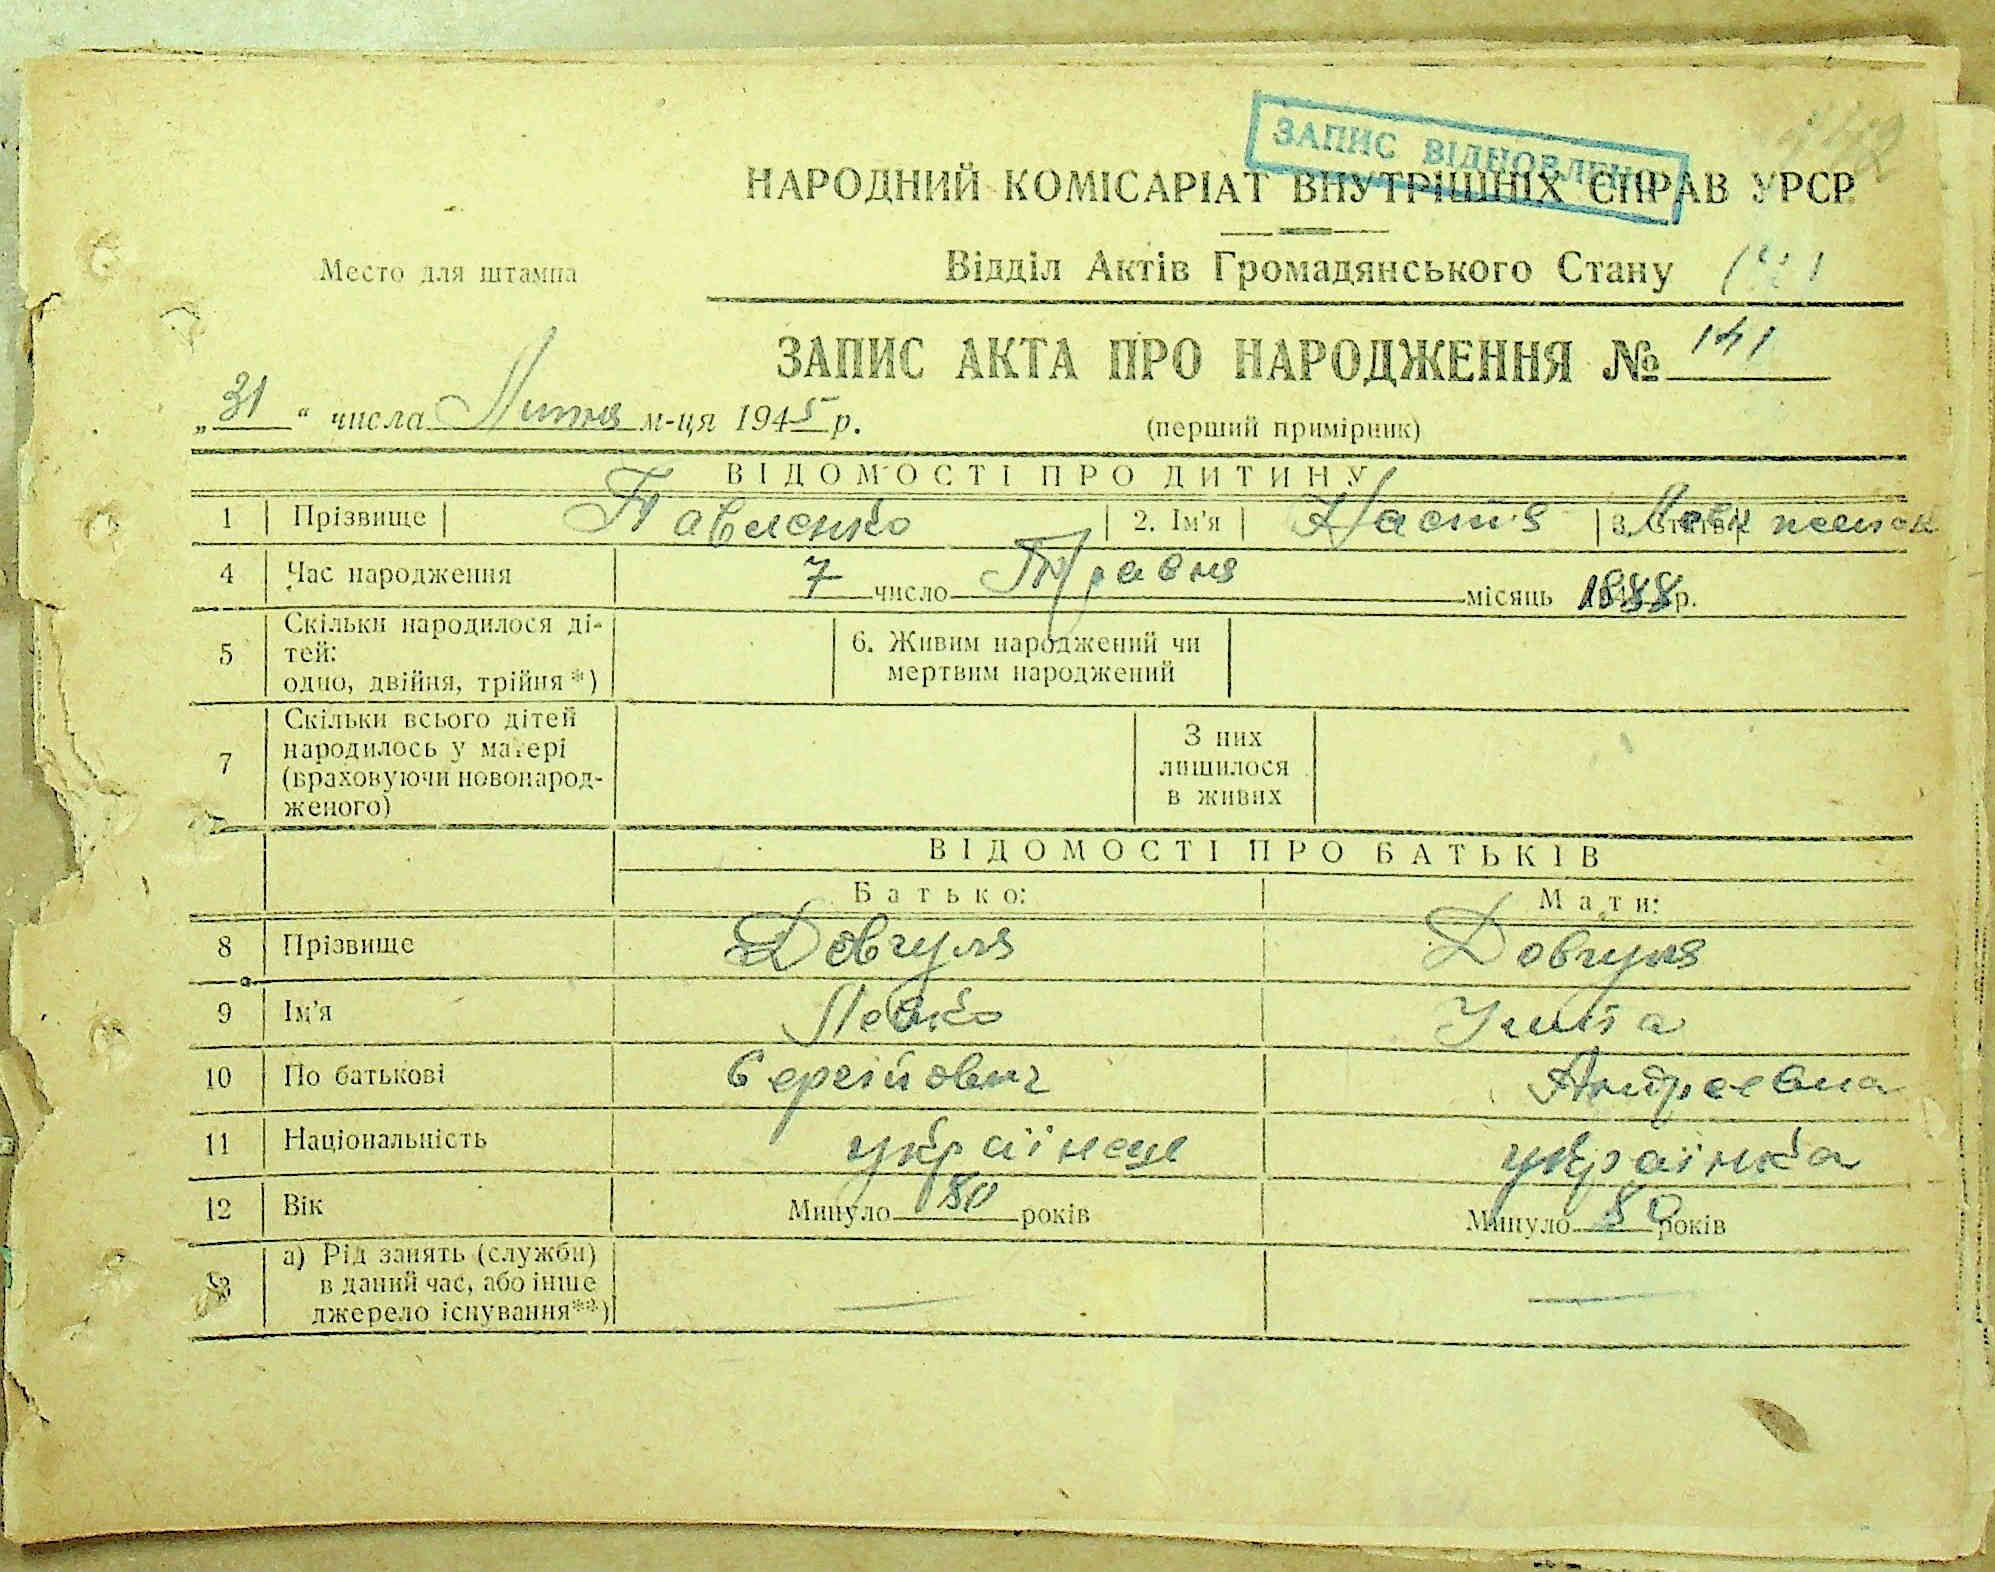 ЗАПИС ВІДНОВЛЕНО
НАРОДНИЙ КОМІСАРІАТ ВНУТРІШНІХ СПРАВ УРСР
Место для штампа
Відділ Актів Громадянського Стану
ЗАПИС АКТА ПРО НАРОДЖЕННЯ № 141
„31“ числа Липня м-ця 1945 р.
(перший примірник)
ВІДОМОСТІ ПРО ДИТИНУ
1 Прізвище Павленко 2. Ім'я Настя 3. Стать
4 Час народження 7 число Травня місяць 1888 р.
5 Скільки народилося ді-
тей:
одно, двійня, трійня *)
6. Живим народжений чи
мертвим народжений
7 Скільки всього дітей
народилось у матері
(враховуючи новонарод-
женого)
З них
лишилося
в живих
ВІДОМОСТІ ПРО БАТЬКІВ
Батько: Мати:
8 Прізвище Довгуля Довгуля
9 Ім'я Левко
10 По батькові Сергійович Андреевна
11 Національність українець українка
12 Вік Минуло 80 років Минуло 80 років
13 а) Рід занять (служби)
в даний час, або інше
джерело існування**) — —